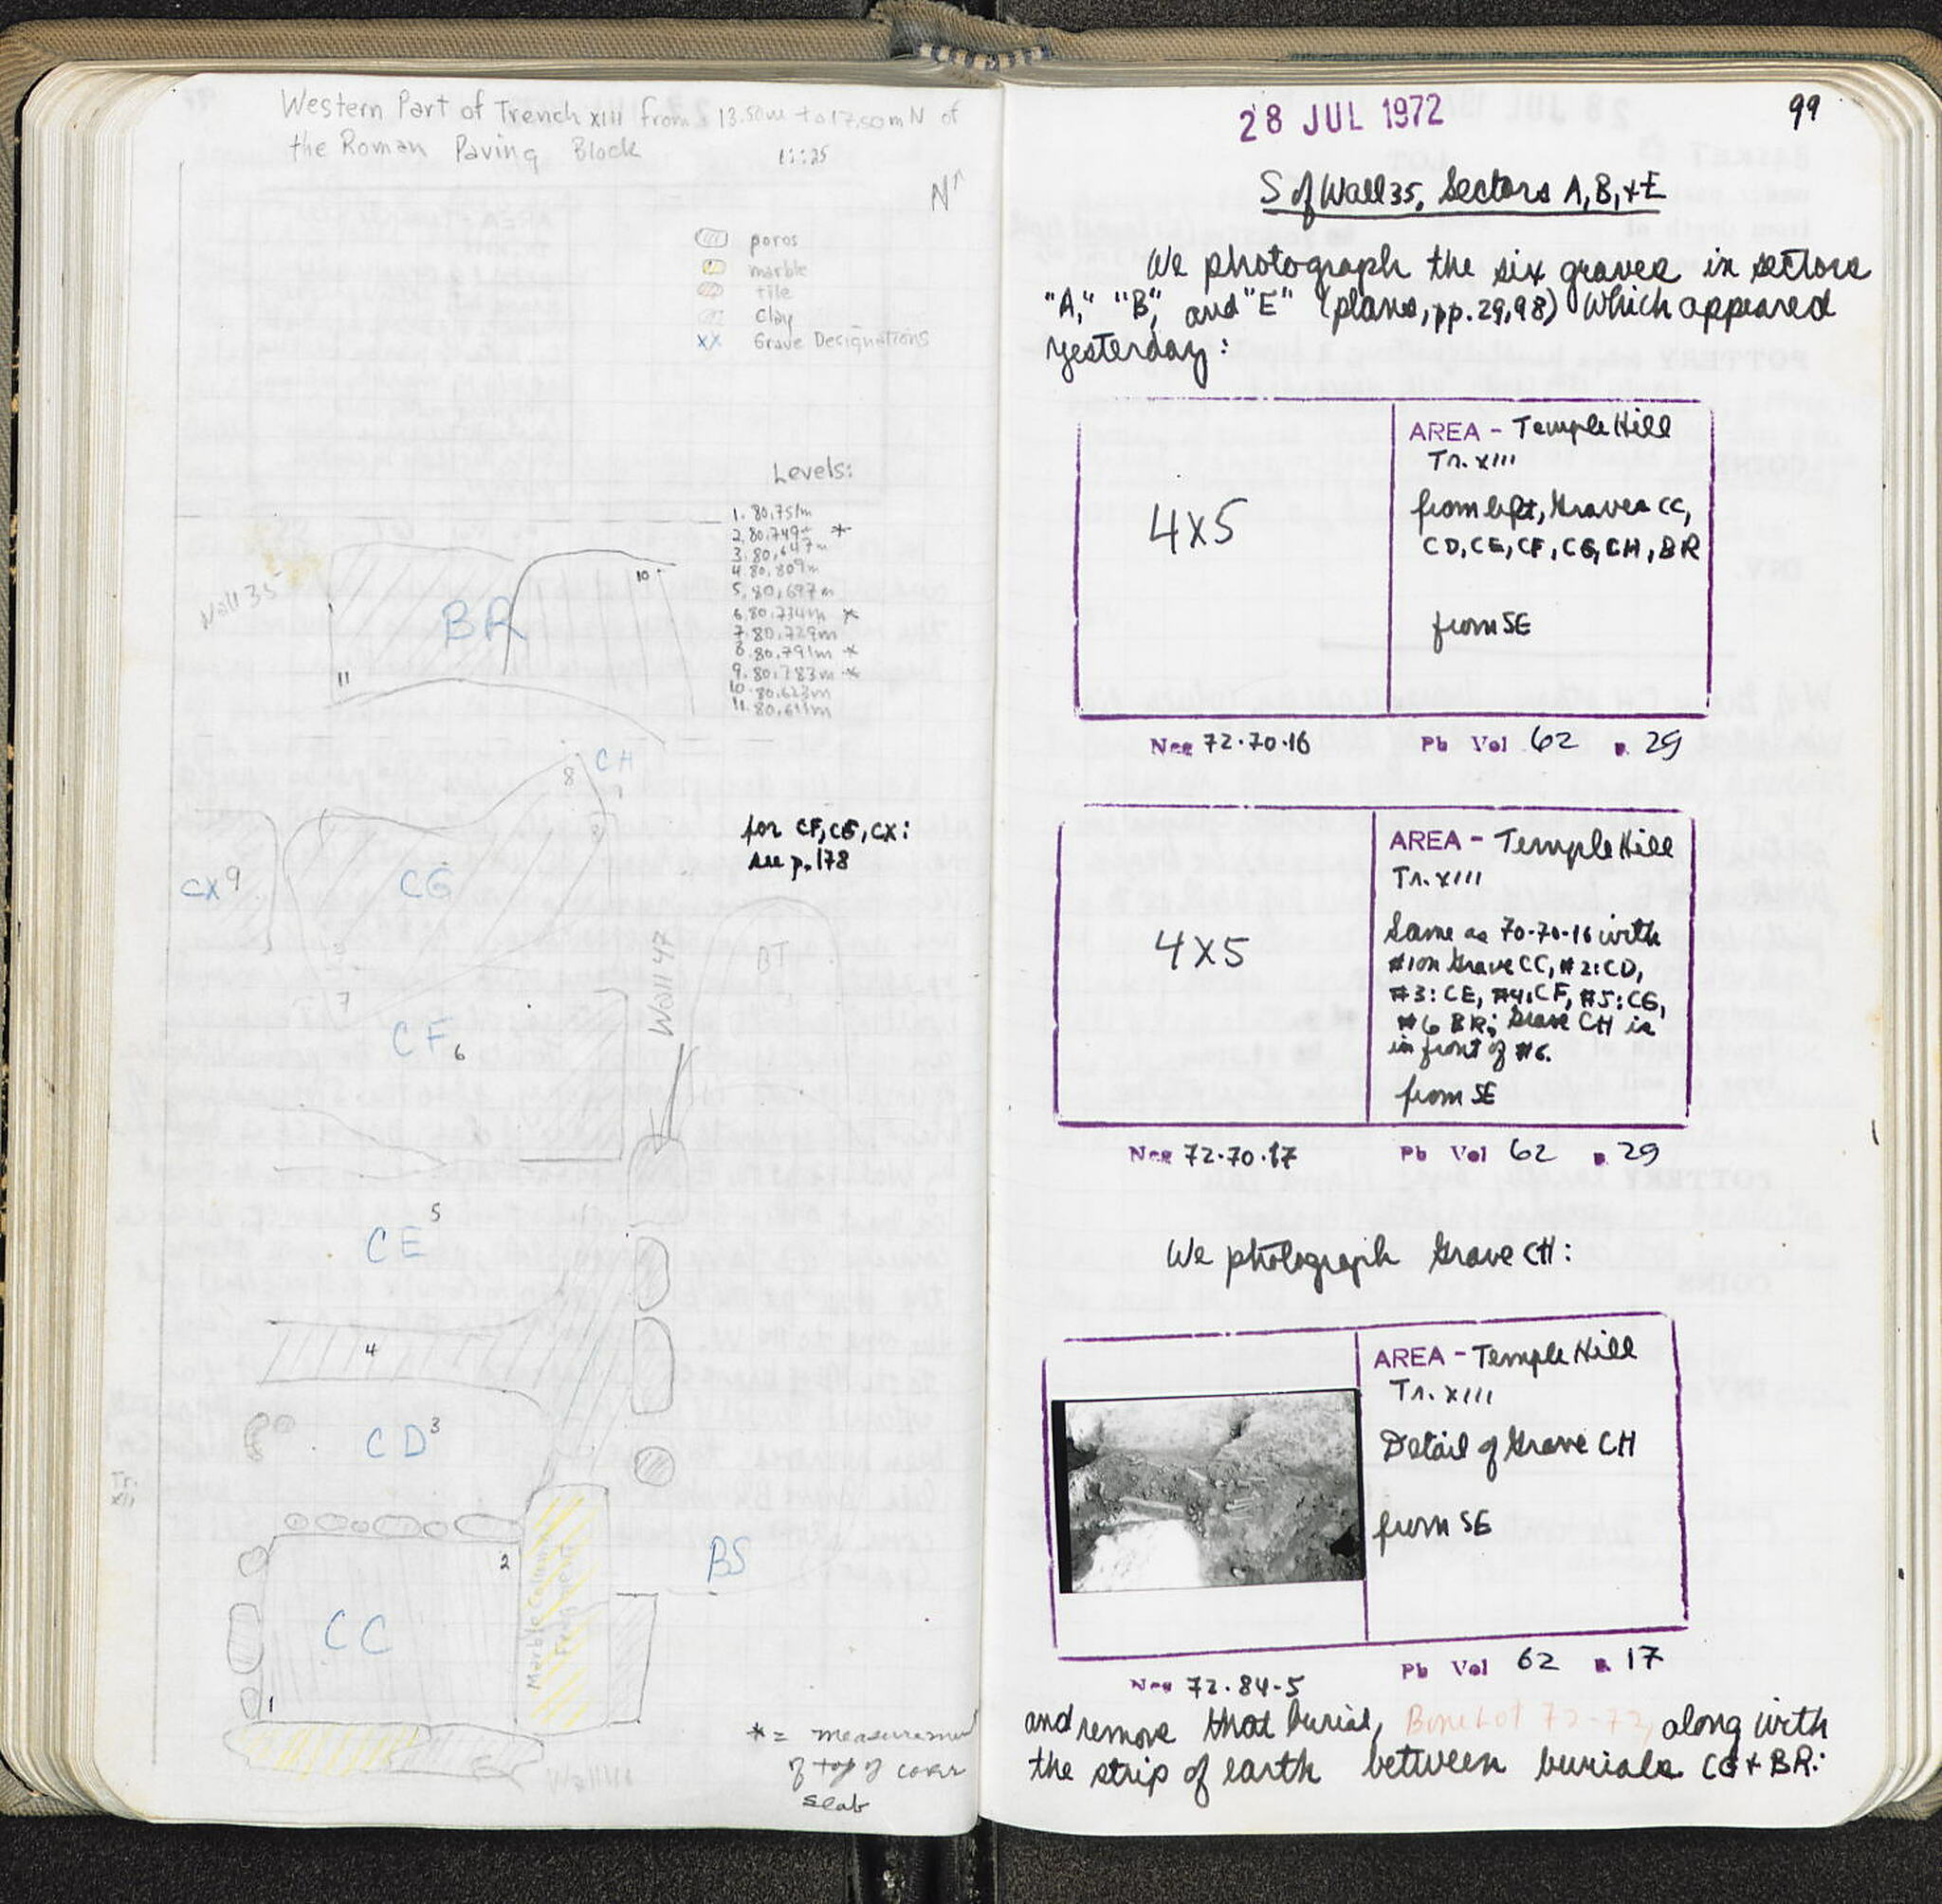 Western Part of Trench XIII from 13.50m to 17.50m N of
the Roman Paving Block
1:25
N
poros
marble
tile
clay
XX Grave Designations
Levels:
1. 80.751m
2. 80.749m *
3. 80.647m
4. 80.809m
5. 80.697m
6. 80.734m *
7. 80.729m
8. 80.791m *
9. 80.783m *
10. 80.623m
11. 80.611m
Wall 35
BR
10
11
CH
8
for CF, CG, CX:
see p. 178
CX 9
CG
Wall 47
BT
7
CF 6
5
CE
4
CD 3
Tr.
XII
2
Marble Column
Fragment
BS
CC
1
* = measurement
of top of cover
slab
28 JUL 1972
99
S of Wall 35, Sectors A, B, + E
We photograph the six graves in sectors
"A," "B", and "E" (plans, pp. 29, 98) which appeared
yesterday:
4x5
AREA - Temple Hill
Tr. XIII
from left, Graves CC,
CD, CE, CF, CG, CH, BR
from SE
Neg 72-70-16 Pb Vol 62 p. 29
4x5
AREA - Temple Hill
Tr. XIII
Same as 70-70-16 with
#1 on Grave CC, #2: CD,
#3: CE, #4: CF, #5: CG,
#6 BR; Grave CH is
in front of #6.
from SE
Neg 72-70-17 Pb Vol 62 p. 29
We photograph Grave CH:
AREA - Temple Hill
Tr. XIII
Detail of Grave CH
from SE
Neg 72-84-5 Pb Vol 62 p. 17
and remove that burial, Bone Lot 72-72, along with
the strip of earth between burials CG + BR: